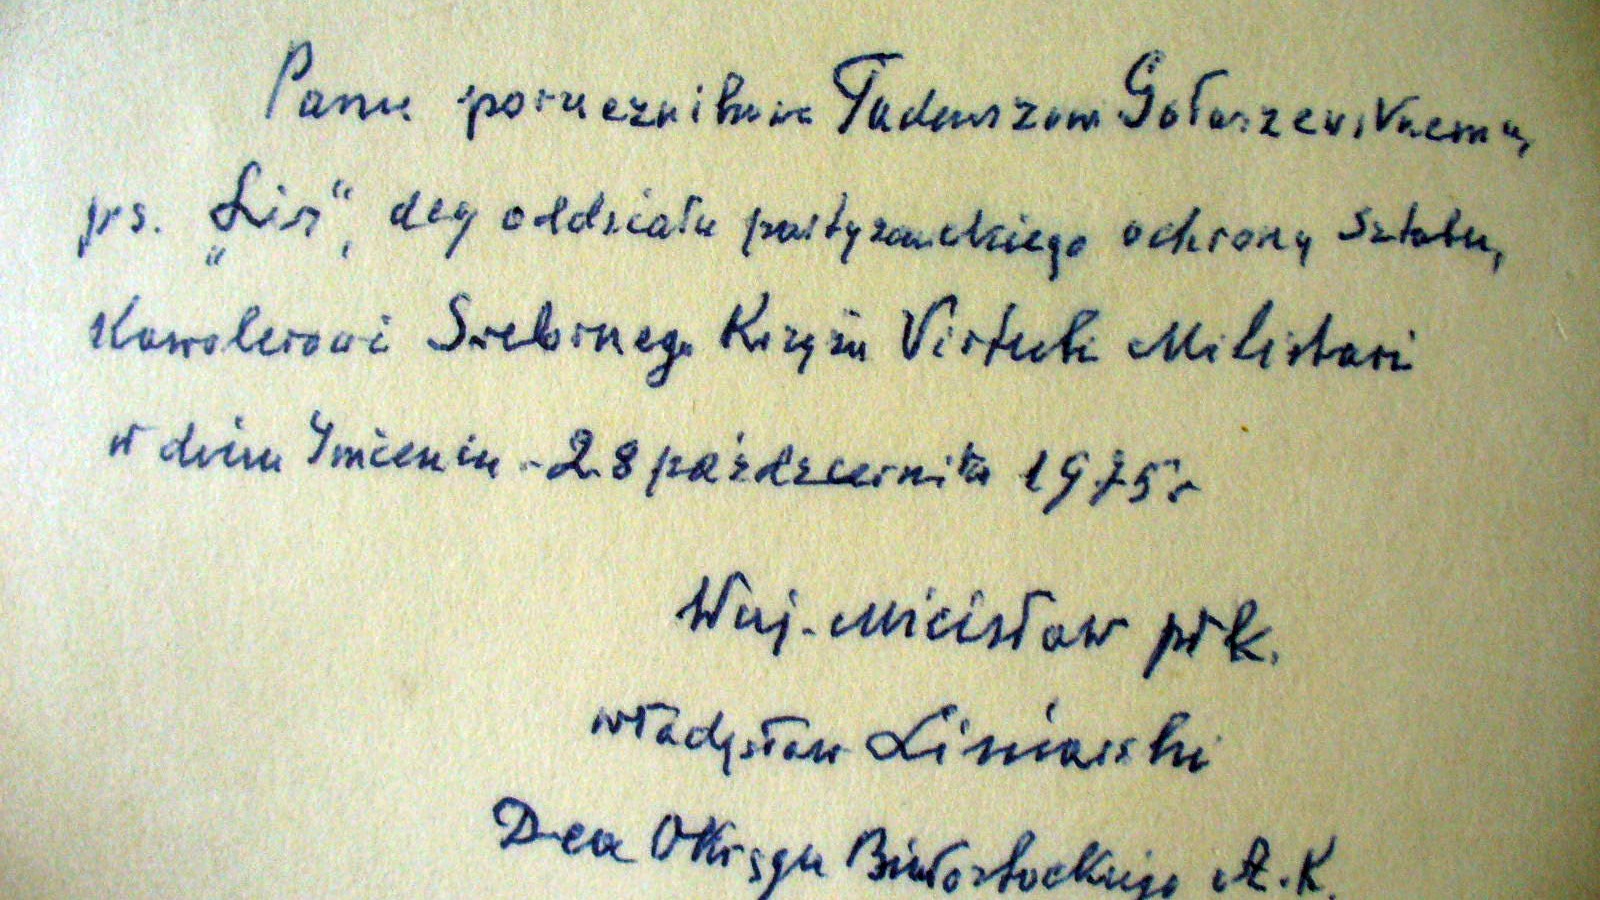 Panu porucznikowi Tadeuszowi Gołaszewskiemu,
ps. „Lis“, dcy oddziału partyzanckiego ochrony sztabu,
Kawalerowi Srebrnego Krzyża Virtuti Militari
w dniu Imienin - 28 października 1975 r
Wuj-Mieisław płk.
Władysław Liniarski
D-ca Okręgu Białostockiego A.K.